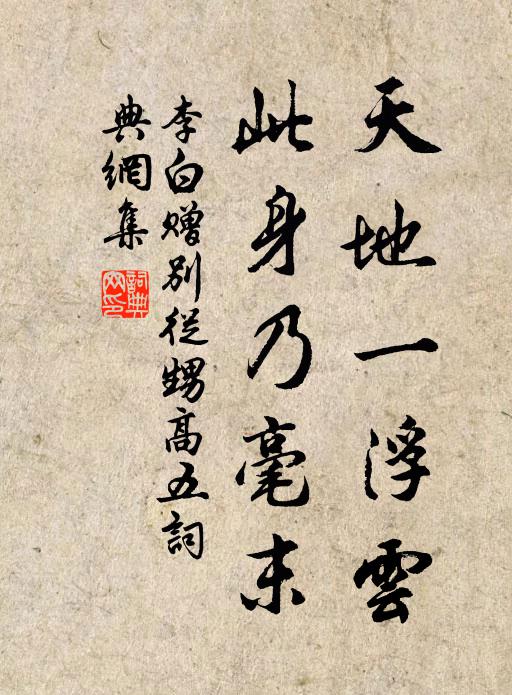 天地一浮雲
此身乃毫末
李白赠別從甥高五詞
典網集
詞典
网印